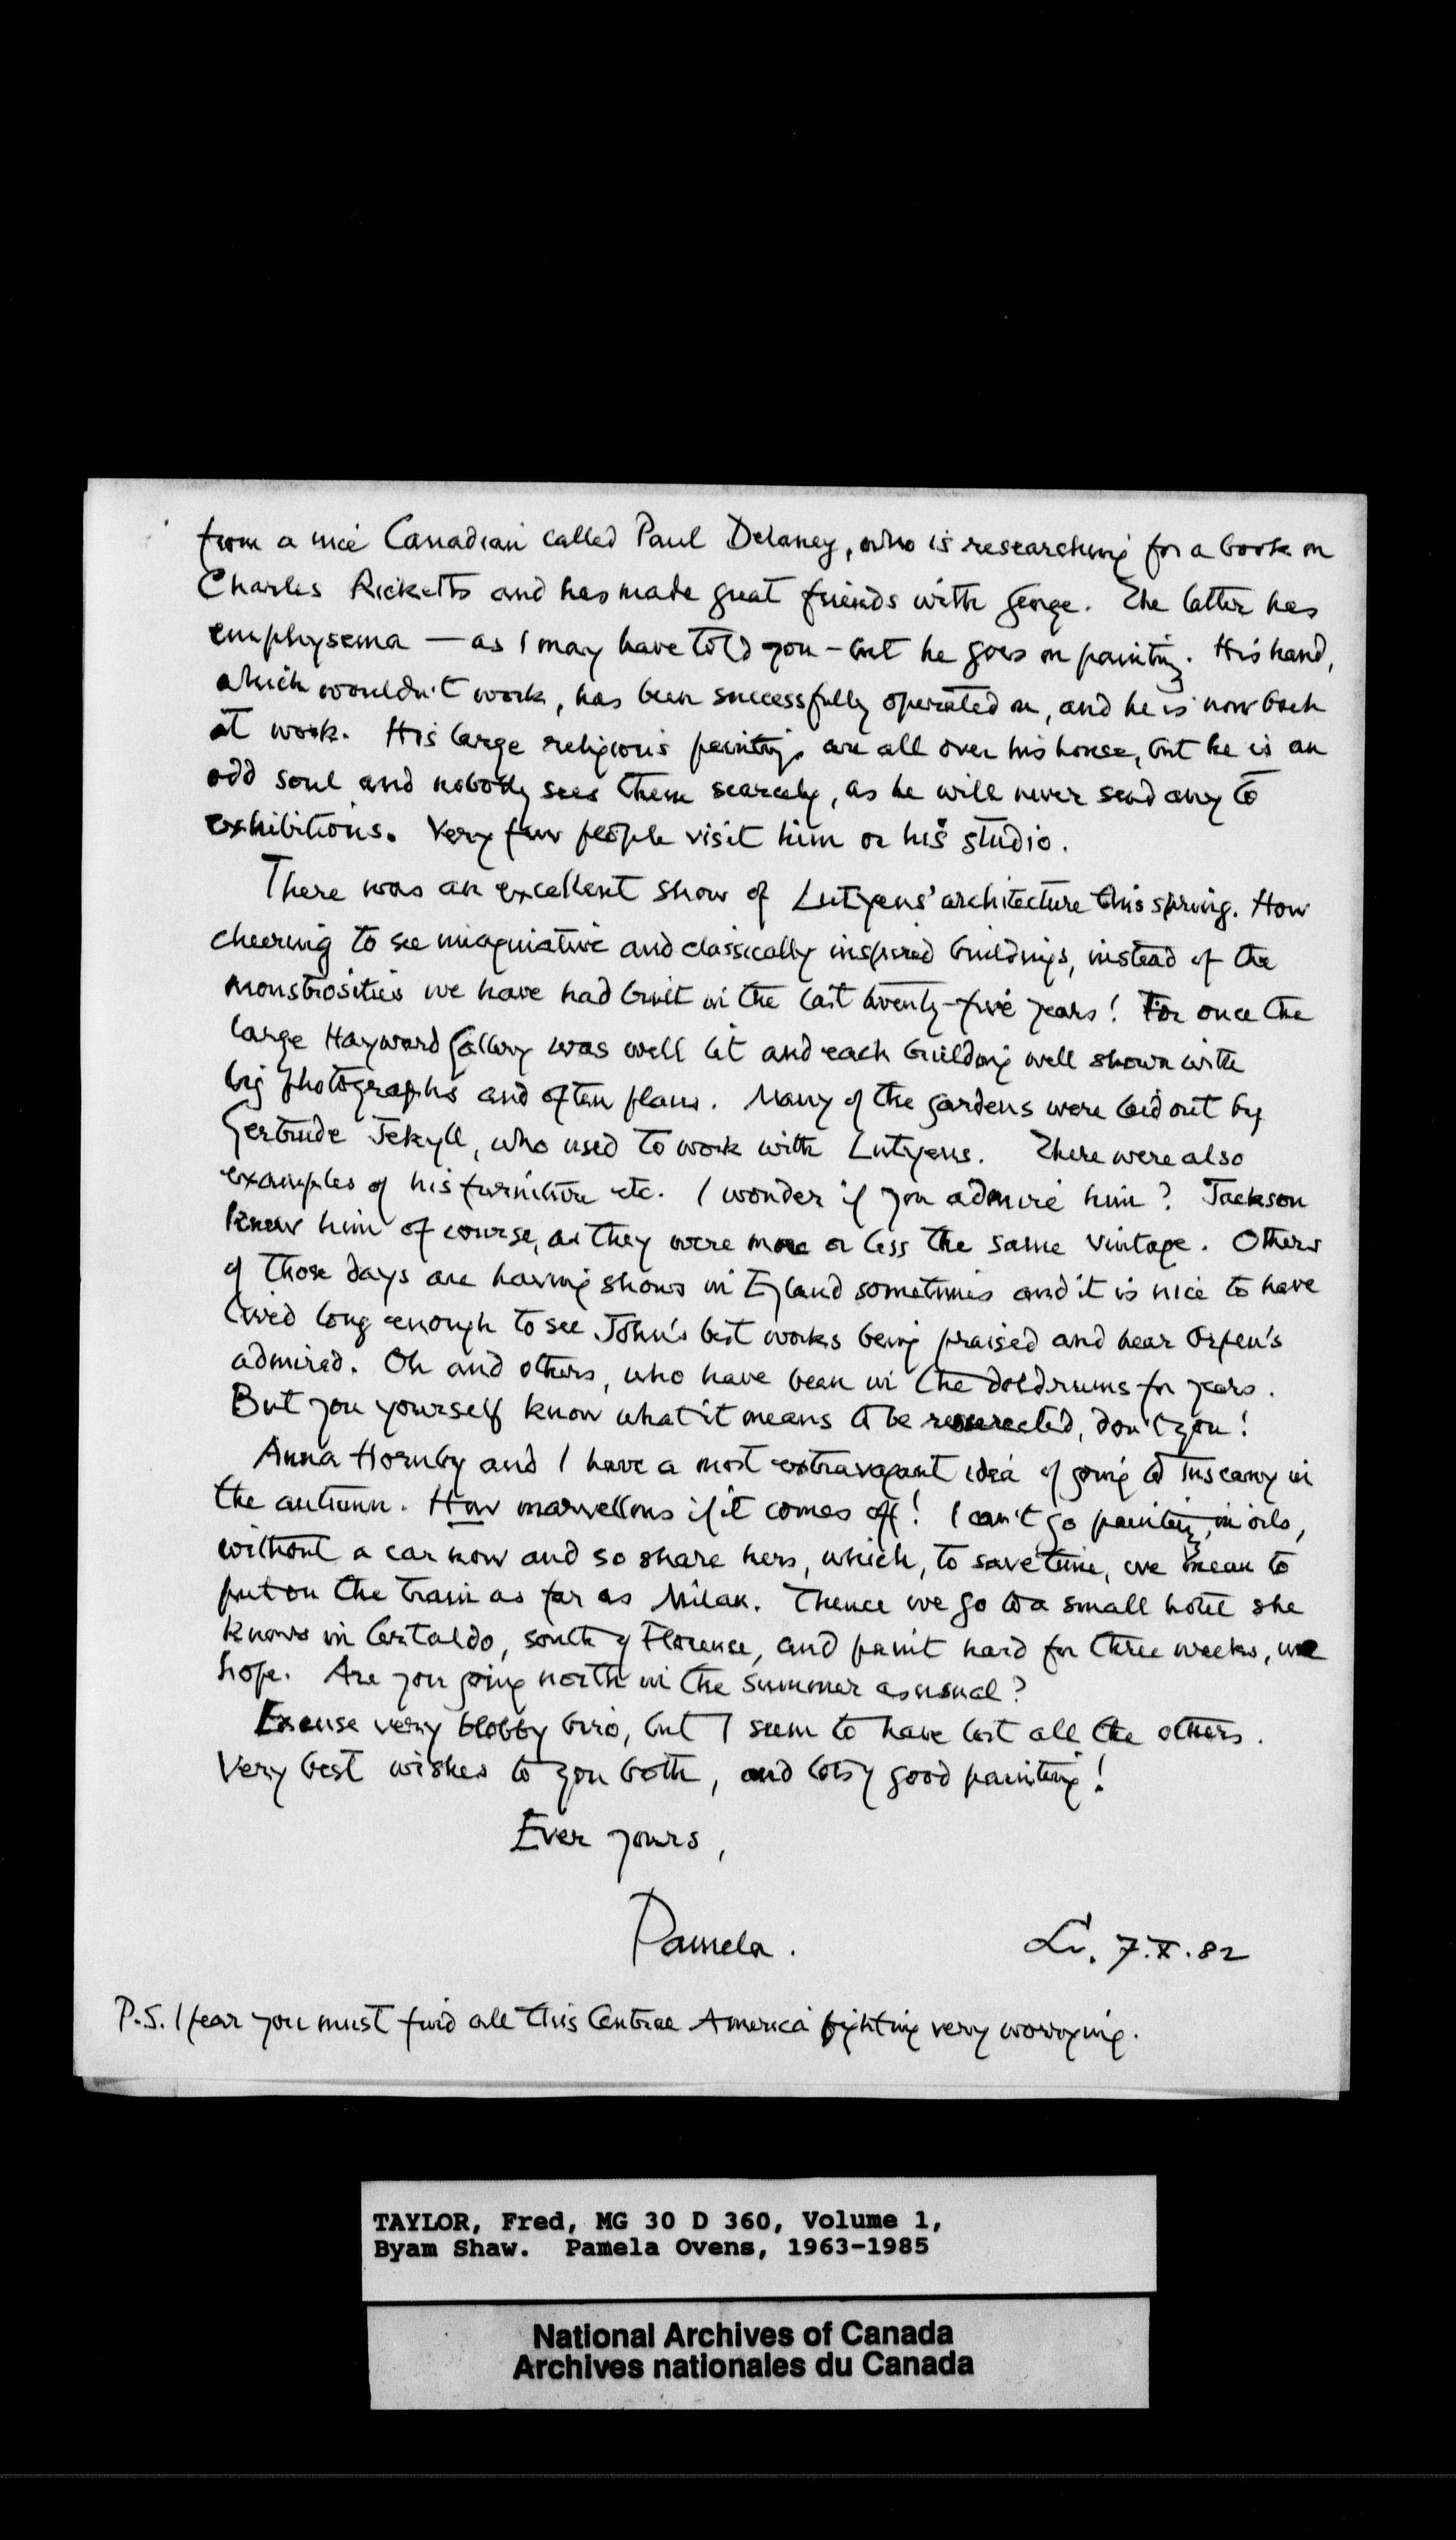 from a nice Canadian called Paul Delaney, who is researching for a book on
Charles Ricketts and has made great friends with George. The latter has
emphysema — as I may have told you – but he goes on painting. His hand,
which wouldn't work, has been successfully operated on, and he is now back
at work. His large religious paintings are all over his house, but he is an
odd soul and nobody sees them scarcely, as he will never send any to
exhibitions. Very few people visit him or his studio.
There was an excellent show of Lutyens' architecture this spring. How
cheering to see imaginative and classically inspired buildings, instead of the
monstrosities we have had built in the last twenty-five years! For once the
large Hayward Gallery was well lit and each building well shown with
big photographs and often plans. Many of the gardens were laid out by
Gertrude Jekyll, who used to work with Lutyens. There were also
examples of his furniture etc. I wonder if you admire him? Jackson
knew him of course, as they were more or less the same vintage. Others
of those days are having shows in England sometimes and it is nice to have
lived long enough to see John's best works being praised and hear Orpen's
admired. Oh and others, who have been in the doldrums for years.
But you yourself know what it means to be resurrected, don't you!
Anna Hornby and I have a most extravagant idea of going to Tuscany in
the autumn. How marvellous if it comes off! I can't go painting, in oils,
without a car now and so share hers, which, to save time, we mean to
put on the train as far as Milan. Thence we go to a small hotel she
knows in Certaldo, south of Florence, and paint hard for three weeks, we
hope. Are you going north in the summer as usual?
Excuse very blobby biro, but I seem to have lost all the others.
Very best wishes to you both, and lots of good painting!
Ever yours,
Pamela.
7.X.82
P.S. I fear you must find all this Central America fighting very worrying.
TAYLOR, Fred, MG 30 D 360, Volume 1,
Byam Shaw. Pamela Ovens, 1963-1985
National Archives of Canada
Archives nationales du Canada